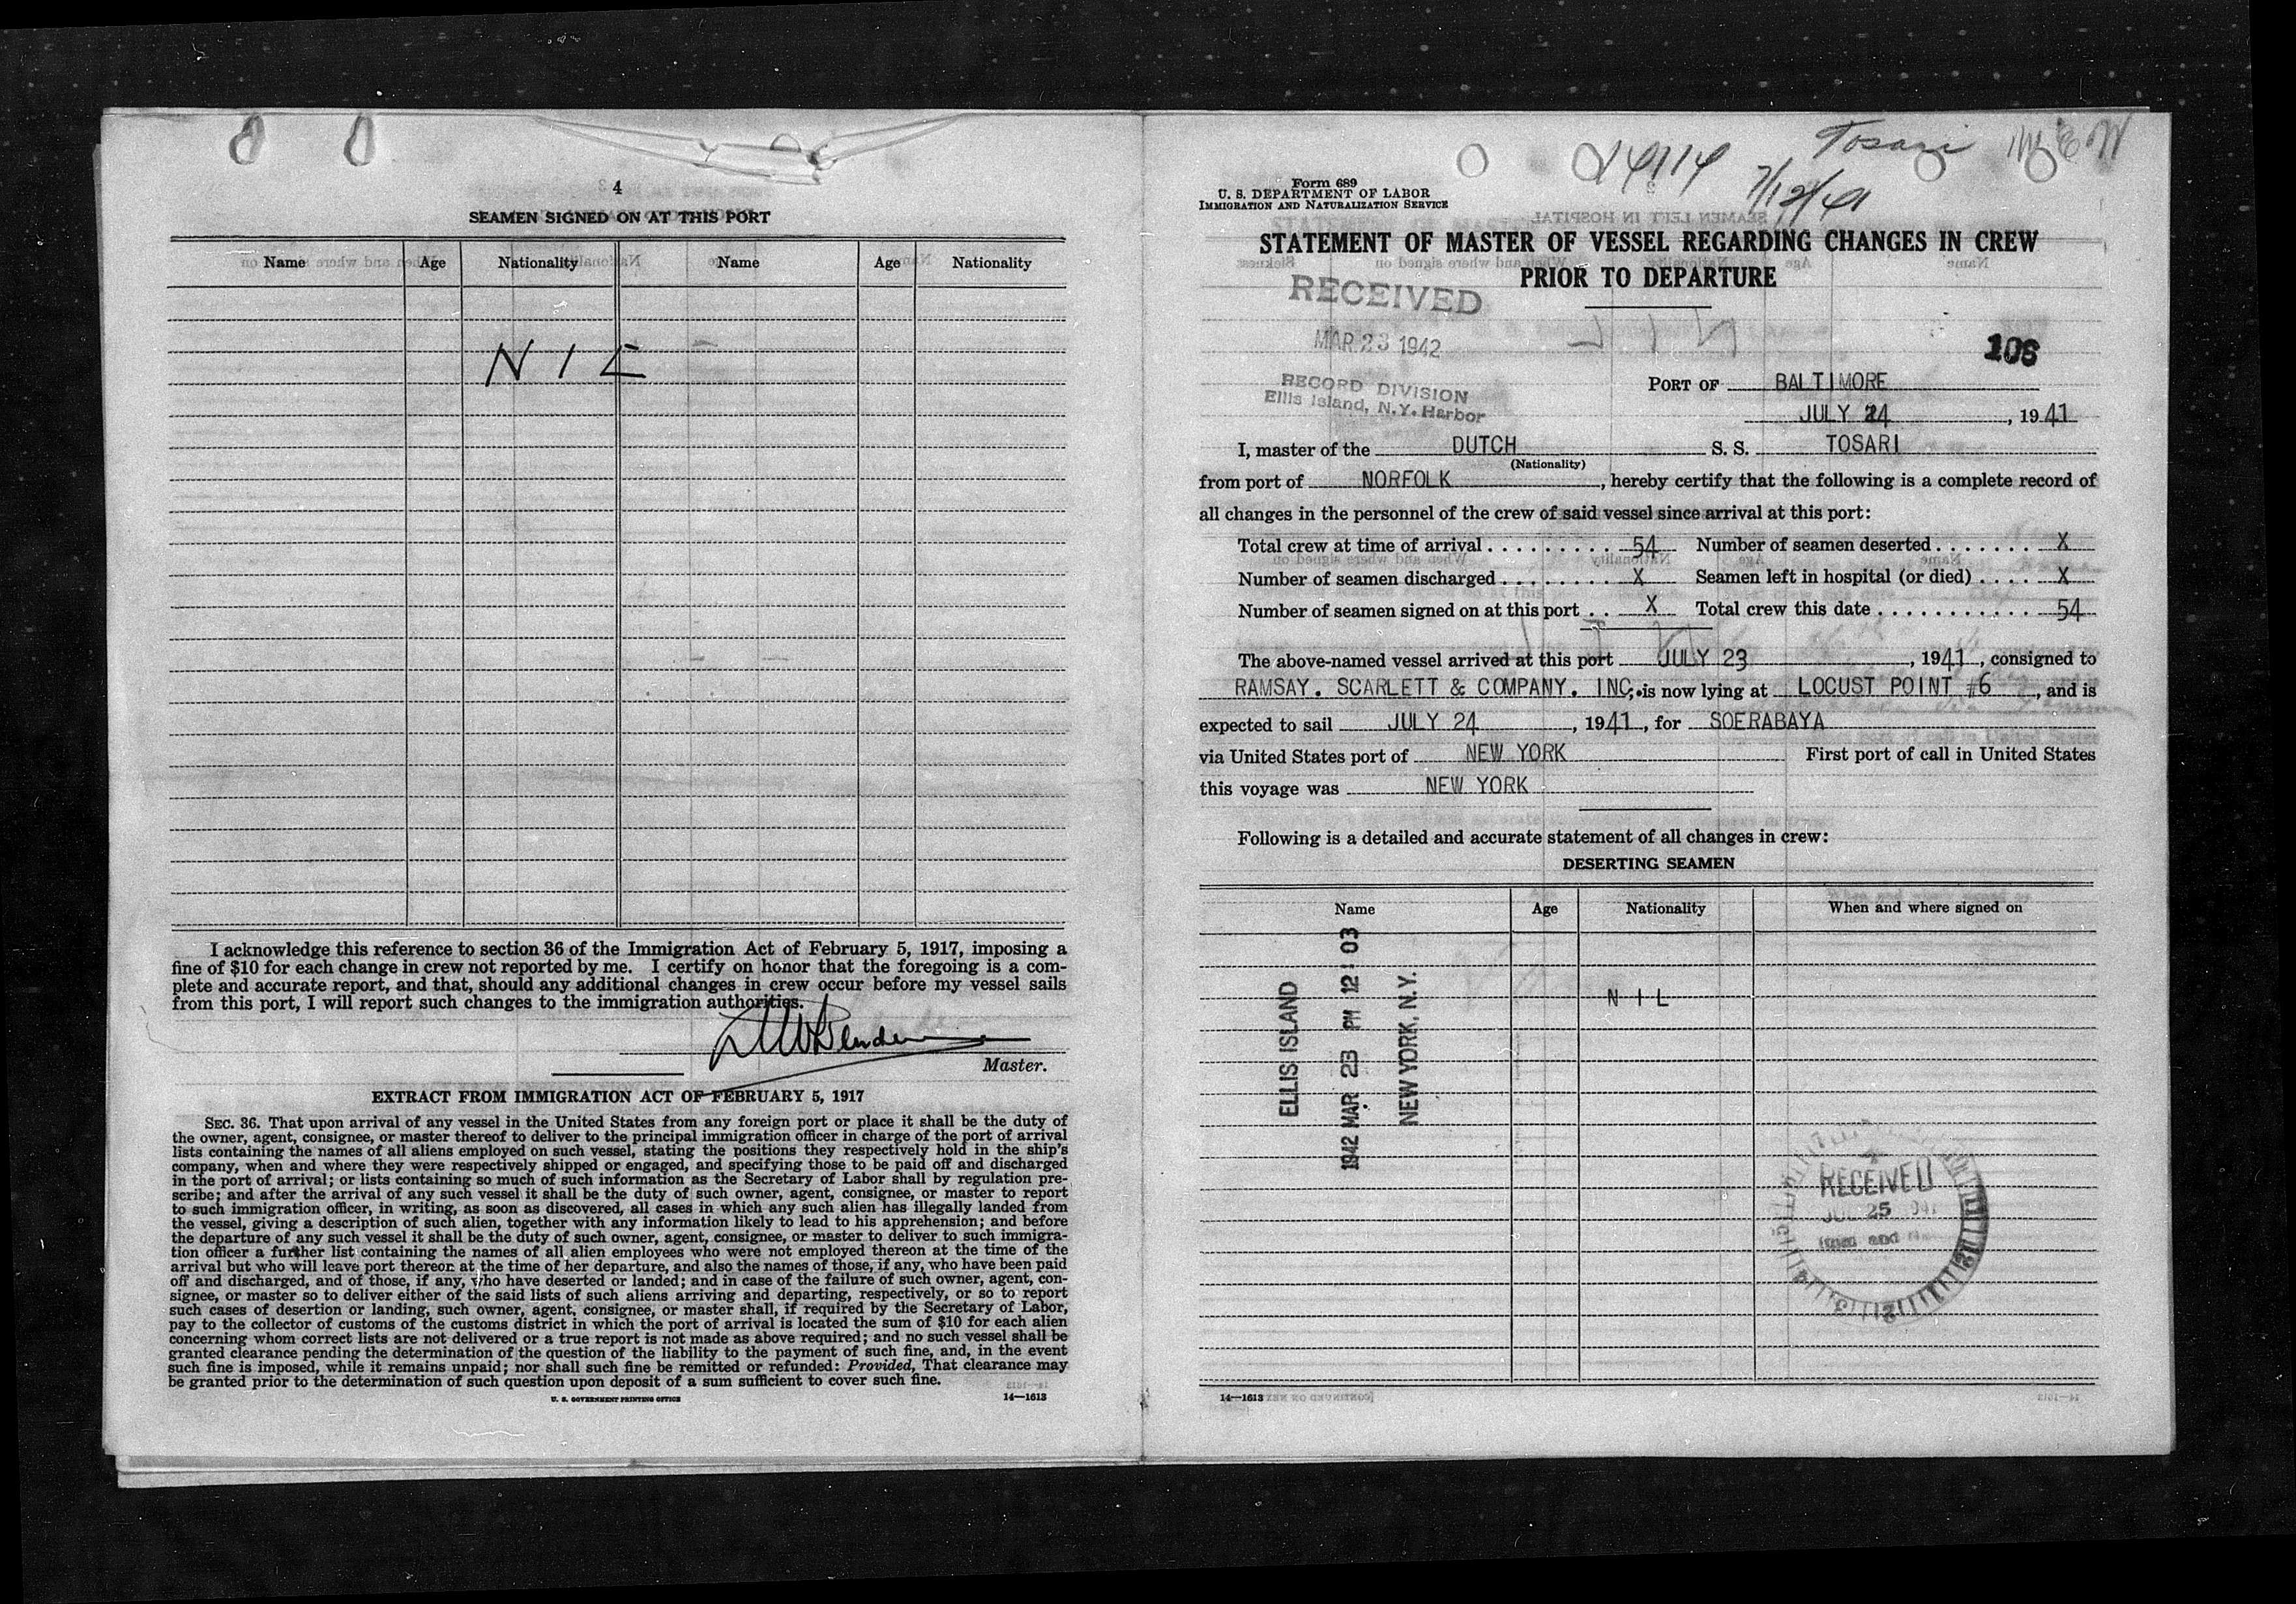 4
SEAMEN SIGNED ON AT THIS PORT
Name Age Nationality Name Age Nationality
NIL
I acknowledge this reference to section 36 of the Immigration Act of February 5, 1917, imposing a
fine of $10 for each change in crew not reported by me. I certify on honor that the foregoing is a com-
plete and accurate report, and that, should any additional changes in crew occur before my vessel sails
from this port, I will report such changes to the immigration authorities.
Master.
EXTRACT FROM IMMIGRATION ACT OF FEBRUARY 5, 1917
SEC. 36. That upon arrival of any vessel in the United States from any foreign port or place it shall be the duty of
the owner, agent, consignee, or master thereof to deliver to the principal immigration officer in charge of the port of arrival
lists containing the names of all aliens employed on such vessel, stating the positions they respectively hold in the ship's
company, when and where they were respectively shipped or engaged, and specifying those to be paid off and discharged
in the port of arrival; or lists containing so much of such information as the Secretary of Labor shall by regulation pre-
scribe; and after the arrival of any such vessel it shall be the duty of such owner, agent, consignee, or master to report
to such immigration officer, in writing, as soon as discovered, all cases in which any such alien has illegally landed from
the vessel, giving a description of such alien, together with any information likely to lead to his apprehension; and before
the departure of any such vessel it shall be the duty of such owner, agent, consignee, or master to deliver to such immigra-
tion officer a further list containing the names of all alien employees who were not employed thereon at the time of the
arrival but who will leave port thereon at the time of her departure, and also the names of those, if any, who have been paid
off and discharged, and of those, if any, who have deserted or landed; and in case of the failure of such owner, agent, con-
signee, or master so to deliver either of the said lists of such aliens arriving and departing, respectively, or so to report
such cases of desertion or landing, such owner, agent, consignee, or master shall, if required by the Secretary of Labor,
pay to the collector of customs of the customs district in which the port of arrival is located the sum of $10 for each alien
concerning whom correct lists are not delivered or a true report is not made as above required; and no such vessel shall be
granted clearance pending the determination of the question of the liability to the payment of such fine, and, in the event
such fine is imposed, while it remains unpaid; nor shall such fine be remitted or refunded: Provided, That clearance may
be granted prior to the determination of such question upon deposit of a sum sufficient to cover such fine.
U. S. GOVERNMENT PRINTING OFFICE 14—1613
Tosari
7/12/41
Form 689
U. S. DEPARTMENT OF LABOR
IMMIGRATION AND NATURALIZATION SERVICE
STATEMENT OF MASTER OF VESSEL REGARDING CHANGES IN CREW
PRIOR TO DEPARTURE
RECEIVED
MAR 23 1942
RECORD DIVISION
Ellis Island, N.Y. Harbor
106
PORT OF BALTIMORE
JULY 24, 1941
I, master of the DUTCH S. S. TOSARI
(Nationality)
from port of NORFOLK, hereby certify that the following is a complete record of
all changes in the personnel of the crew of said vessel since arrival at this port:
Total crew at time of arrival 54 Number of seamen deserted X
Number of seamen discharged X Seamen left in hospital (or died) X
Number of seamen signed on at this port X Total crew this date 54
The above-named vessel arrived at this port JULY 23, 1941, consigned to
RAMSAY. SCARLETT & COMPANY. INC; is now lying at LOCUST POINT #6, and is
expected to sail JULY 24, 1941, for SOERABAYA
via United States port of NEW YORK First port of call in United States
this voyage was NEW YORK
Following is a detailed and accurate statement of all changes in crew:
DESERTING SEAMEN
Name Age Nationality When and where signed on
NIL
ELLIS ISLAND
1942 MAR 23 PM 12 03
NEW YORK, N.Y.
RECEIVED
JUL 25
14—1613